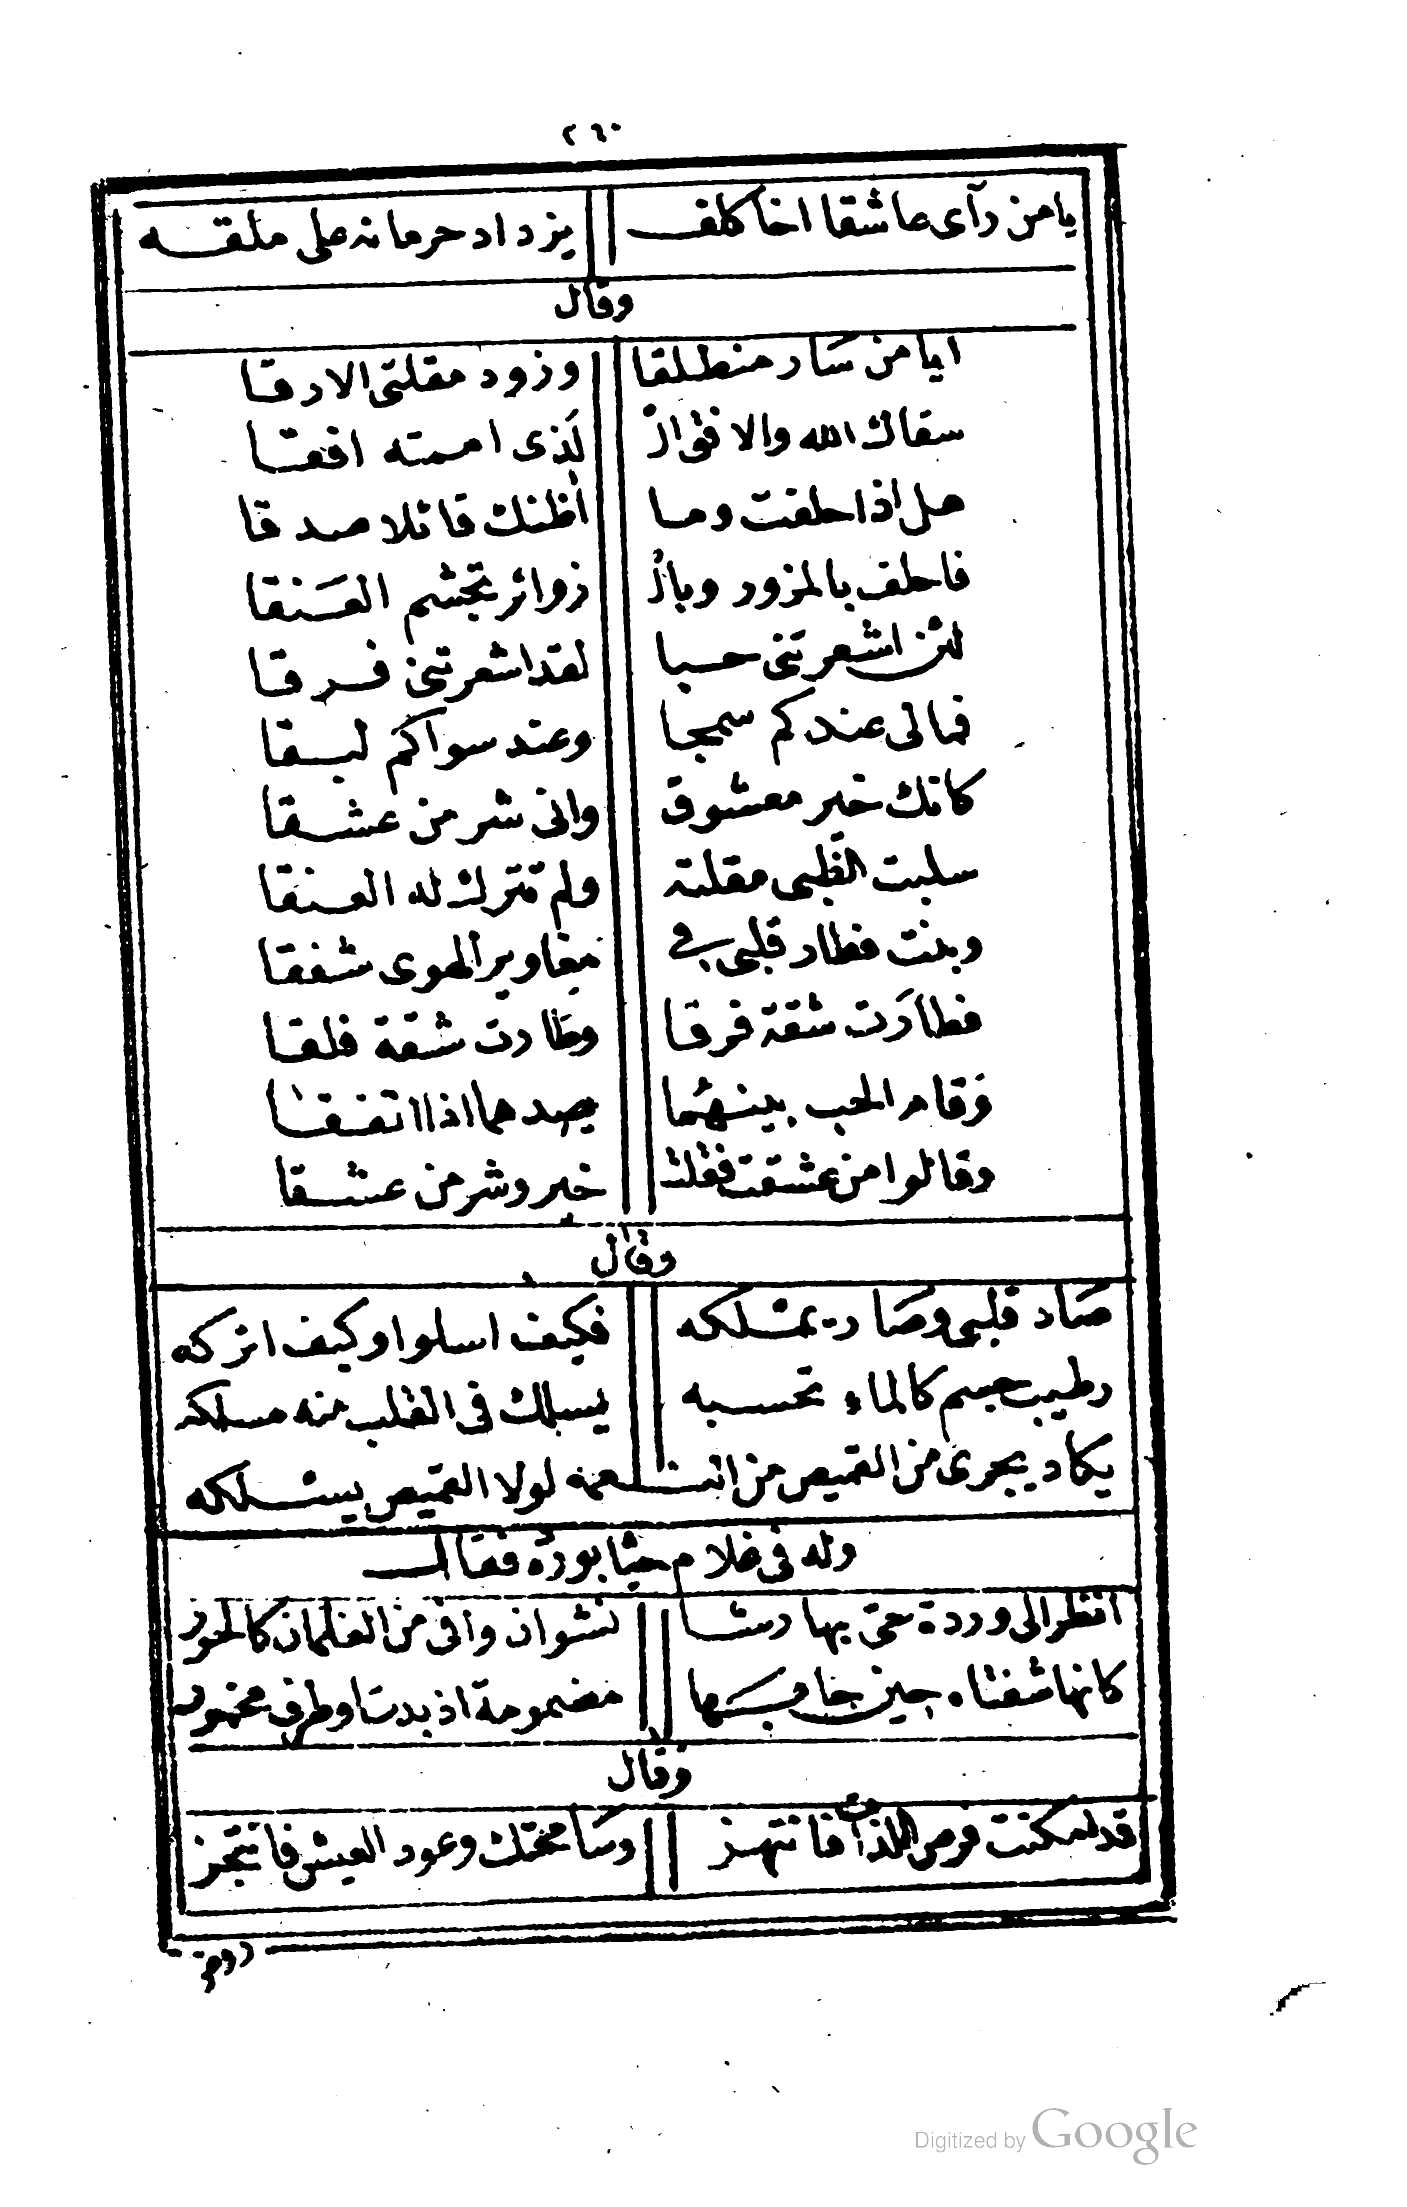 ٢٦٠
يا من رآى عاشقا اخا كلف يزداد حرمانه على ملقه
وقال
ايا من سار منطلقا وزود مقلتى الارقا
سقاك الله والافق ال لذى اممته افقا
هل اذا حلفت وما اظنك قائلا صدقا
فاحلف بالمزور وبال زوائر تجشم العنقا
لئن اشعرتنى حبا لقد اشعرتنى فرقا
فمالى عندكم سمجا وعند سواكم لبقا
كانك خير معشوق وانى شر من عشقا
سلبت الظبى مقلته ولم تترك له العنقا
وبنت فطار قلبى فى مغاوير الهوى شفقا
فطارت شقة فرقا وطارت شقة فلقا
وقام الحب بينهما يصدهما اذا اتفقا
وقالوا من عشقت فقلت خير وشر من عشقا
وقال
صاد قلبى وصار يمتلكه فكيف اسلوا وكيف اتركه
رطيب جسم كالماء تحسبه يسلك فى القلب منه مسلكه
يكاد يجرى من القميص من النعمة لولا القميص يستلكه
وله فى غلام حيا بوردة فقال
انظر الى وردة حيى بها رشا نشوان وافى من الغلمان كالحور
كانها شفتاه حين جا وبها مضمومة اذ بدت او طرف مخمور
وقال
قد امكنت فرص اللذات فانتهز وسامحتك وعود العيش فانتجز